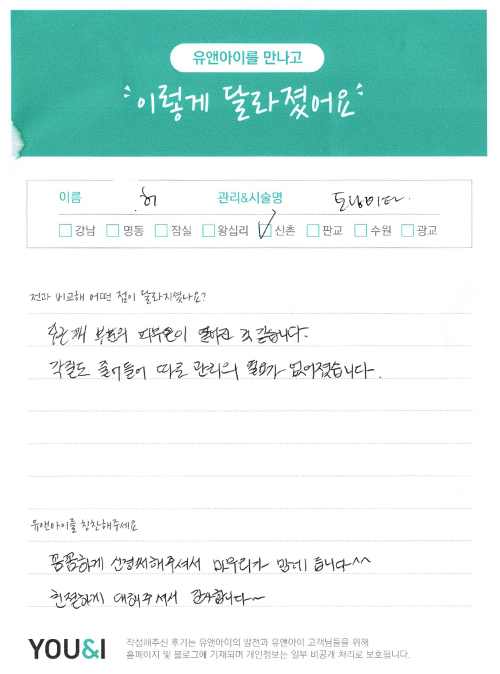 유앤아이를 만나고
이렇게 달라졌어요
이름 허 관리&시술명 토닝미다
강남 명동 잠실 왕십리 신촌 판교 수원 광교
전과 비교해 어떤 점이 달라지셨나요?
주근깨 부분의 피부톤이 옅어진 것 같습니다.
각질도 줄어들어 따로 관리의 필요가 없어졌습니다.
유앤아이를 칭찬해주세요
꼼꼼하게 신경써해주셔서 마무리가 맘에 듭니다^^
친절하게 대해주셔서 감사합니다~
YOU&I
작성해주신 후기는 유앤아이의 발전과 유앤아이 고객님들을 위해
홈페이지 및 블로그에 기재되며 개인정보는 일부 비공개 처리로 보호됩니다.